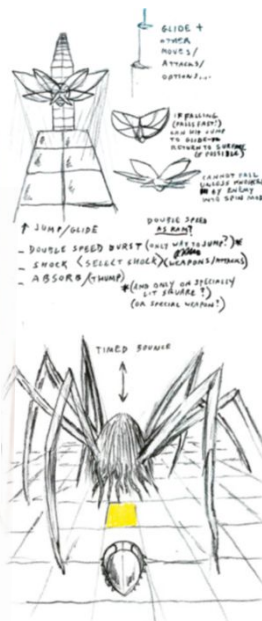 GLIDE +
OTHER
MOVES/
ATTACKS/
OPTIONS...
IF FALLING
(FALLS FAST!)
CAN HIT JUMP
TO GLIDE
RETURN TO SURFACE
(IF POSSIBLE)
CANNOT FALL
UNLESS
BY ENEMY
INTO SPIN
↑ JUMP/GLIDE
DOUBLE SPEED
AS RAM?
- DOUBLE SPEED BURST (ONLY WAY TO JUMP?)*
- SHOCK <SELECT SHOCK> (WEAPONS/ATTACKS)
- ABSORB/(THUMP)
*(AND ONLY ON SPECIALLY
LIT SQUARE?)
(OR SPECIAL WEAPON?)
TIMED BOUNCE